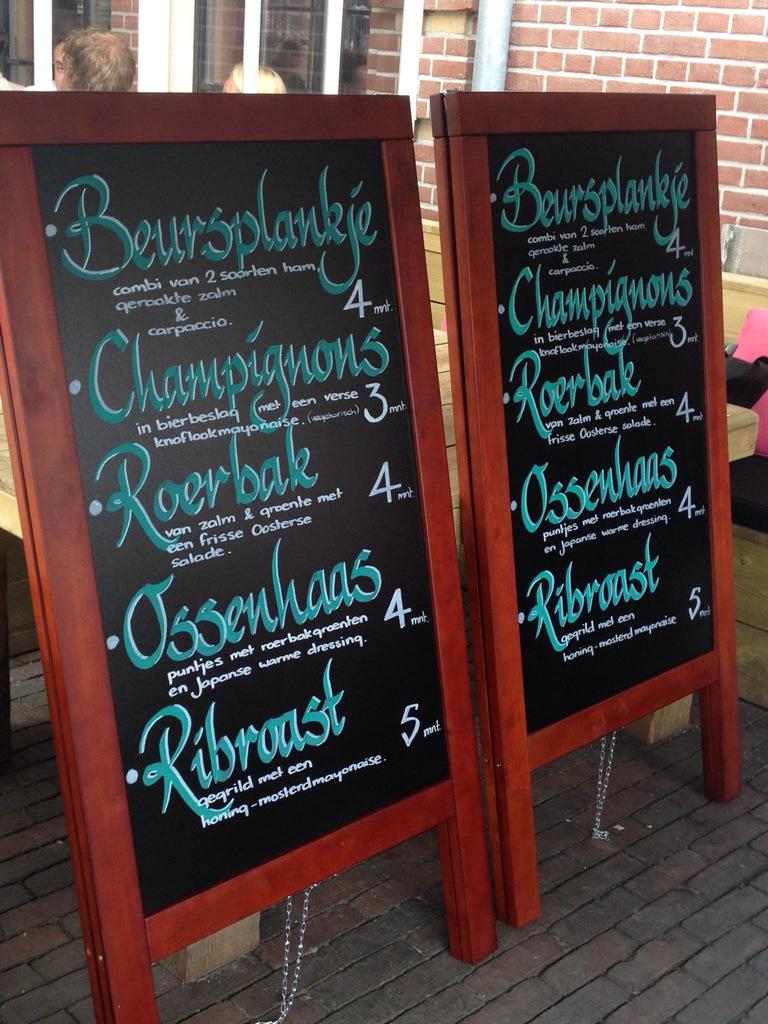 Beursplankje
combi van 2 soorten ham,
gerookte zalm
&
carpaccio.
4 mnt.
Champignons
in bierbeslag met een verse
knoflookmayonaise. (vegetarisch)
3 mnt.
Roerbak
van zalm & groente met
een frisse Oosterse
salade.
4 mnt.
Ossenhaas
puntjes met roerbakgroenten
en Japanse warme dressing.
4 mnt.
Ribroast
gegrild met een
honing-mosterdmayonaise.
5 mnt.
Beursplankje
combi van 2 soorten ham,
gerookte zalm
&
carpaccio.
4 mnt.
Champignons
in bierbeslag met een verse
knoflookmayonaise. (vegetarisch)
3 mnt.
Roerbak
van zalm & groente met een
frisse Oosterse salade.
4 mnt.
Ossenhaas
puntjes met roerbakgroenten
en Japanse warme dressing.
4 mnt
Ribroast
gegrild met een
honing-mosterd mayonaise
5 mnt.